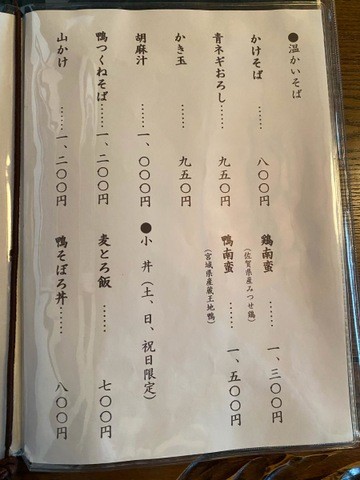 ●温かいそば
かけそば……八〇〇円
青ネギおろし……九五〇円
かき玉……九五〇円
胡麻汁……一、〇〇〇円
鴨つくねそば……一、二〇〇円
山かけ……一、二〇〇円
鶏南蛮……一、三〇〇円
(佐賀県産みつせ鶏)
鴨南蛮……一、五〇〇円
(宮城県産蔵王地鴨)
●小 丼(土、日、祝日限定)
麦とろ飯……七〇〇円
鴨そぼろ丼……八〇〇円